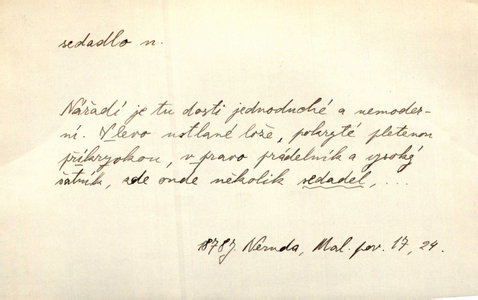 sedadlo n.
Nářadí je tu dosti jednoduché a nemoder-
ní. V levo ustlané lože, pokryté pletenou
příkryvkou, v pravo prádelník a vysoký
šatník, zde onde několik sedadel, ...
1878J Neruda, Mal. pov. 17, 24.